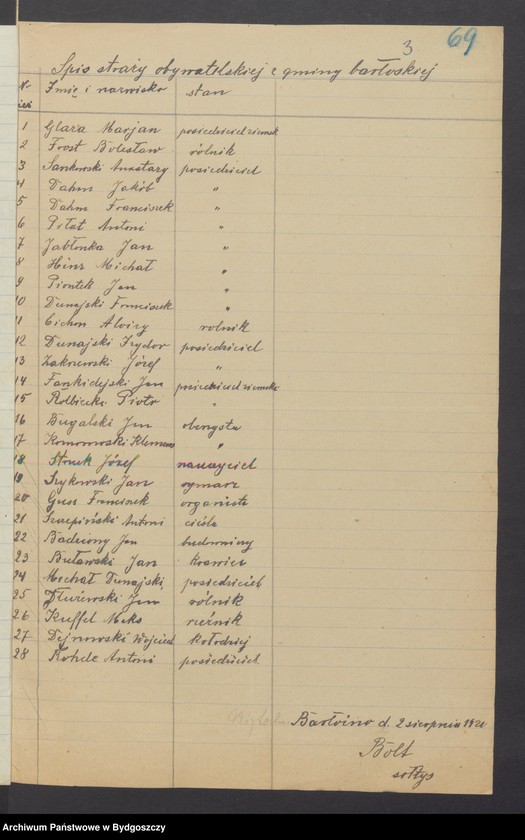 3 69
Spis straży obywatelskiej z gminy bartoskiej
Imię i nazwisko stan
1 Glaza Marjan posiedziciel ziemsk
2 Frost Bolesław rólnik
3 Anastazy posiedziciel
4 Dahm Jakób "
5 Dahm Franciszek "
6 Antoni "
7 Jabłonka Jan "
8 Hinz Michał "
9 Piontek Jan "
10 Dunajski Franciszek "
11 Cichon Alojzy rolnik
12 Dunajski Izydor posiedziciel
13 Zakrzewski Józef "
14 Fankidejski Jan posiedziciel ziemski
15 Rolbiecki Piotr "
16 Bugalski Jan oberzysta
17 Komorowski Klemens "
18 Józef nauczyciel
19 Szykowski Jan rymarz
20 Guss Franciszek organista
21 Szczepiński Antoni cieśla
22 Jan budowniczy
23 Buławski Jan krawiec
24 Michał Dunajski posiedziciel
25 Dłużewski Jan rólnik
26 Kuffel Maks rzeźnik
27 Dejnowski Wojciech kołodziej
28 Rohde Antoni posiedziciel
Bartoino d. 2 sierpnia 1920
Bólt
sołtys
Archiwum Państwowe w Bydgoszczy